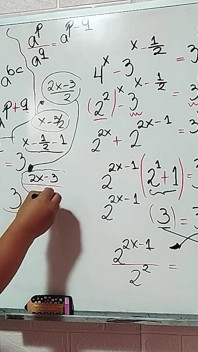 a^p/a^q = a^(p-q)
a^(bc)
(2x-3)/2
a^(p+q)
x-3/2
x-1/2-1
= 3
2x-3
3
4^x - 3^(x-1/2) = 3
(2^2)^x - 3^(x-1/2) = 3
2^(2x) + 2^(2x-1) = 3
2^(2x-1) (2^1+1) =
2^(2x-1) (3) =
2^(2x-1)/2^2 =